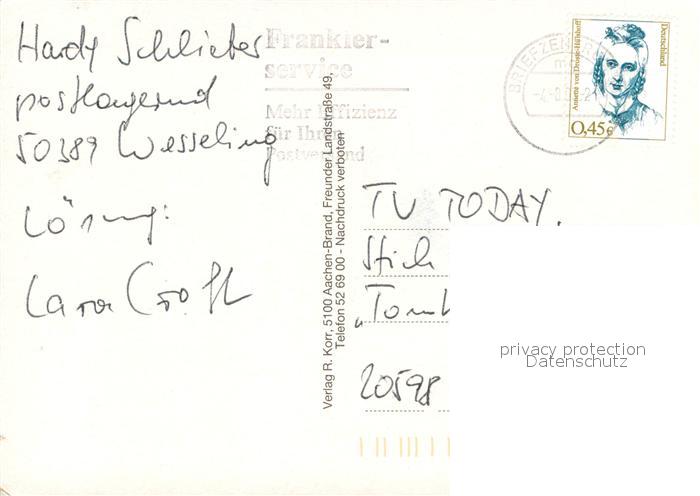 Hardy Schlieber
postlagernd
50389 Wesseling
Lösung:
Lara Croft
Frankier-
service
Mehr Effizienz
für Ihren
Postversand
Verlag R. Korr, 5100 Aachen-Brand, Freunder Landstraße 49,
Telefon 52 69 00 - Nachdruck verboten
BRIEFZENTRUM
Annette von Droste-Hülshoff
Deutschland
0,45€
TV TODAY,
Stich
„Tomb
20598
privacy protection
Datenschutz